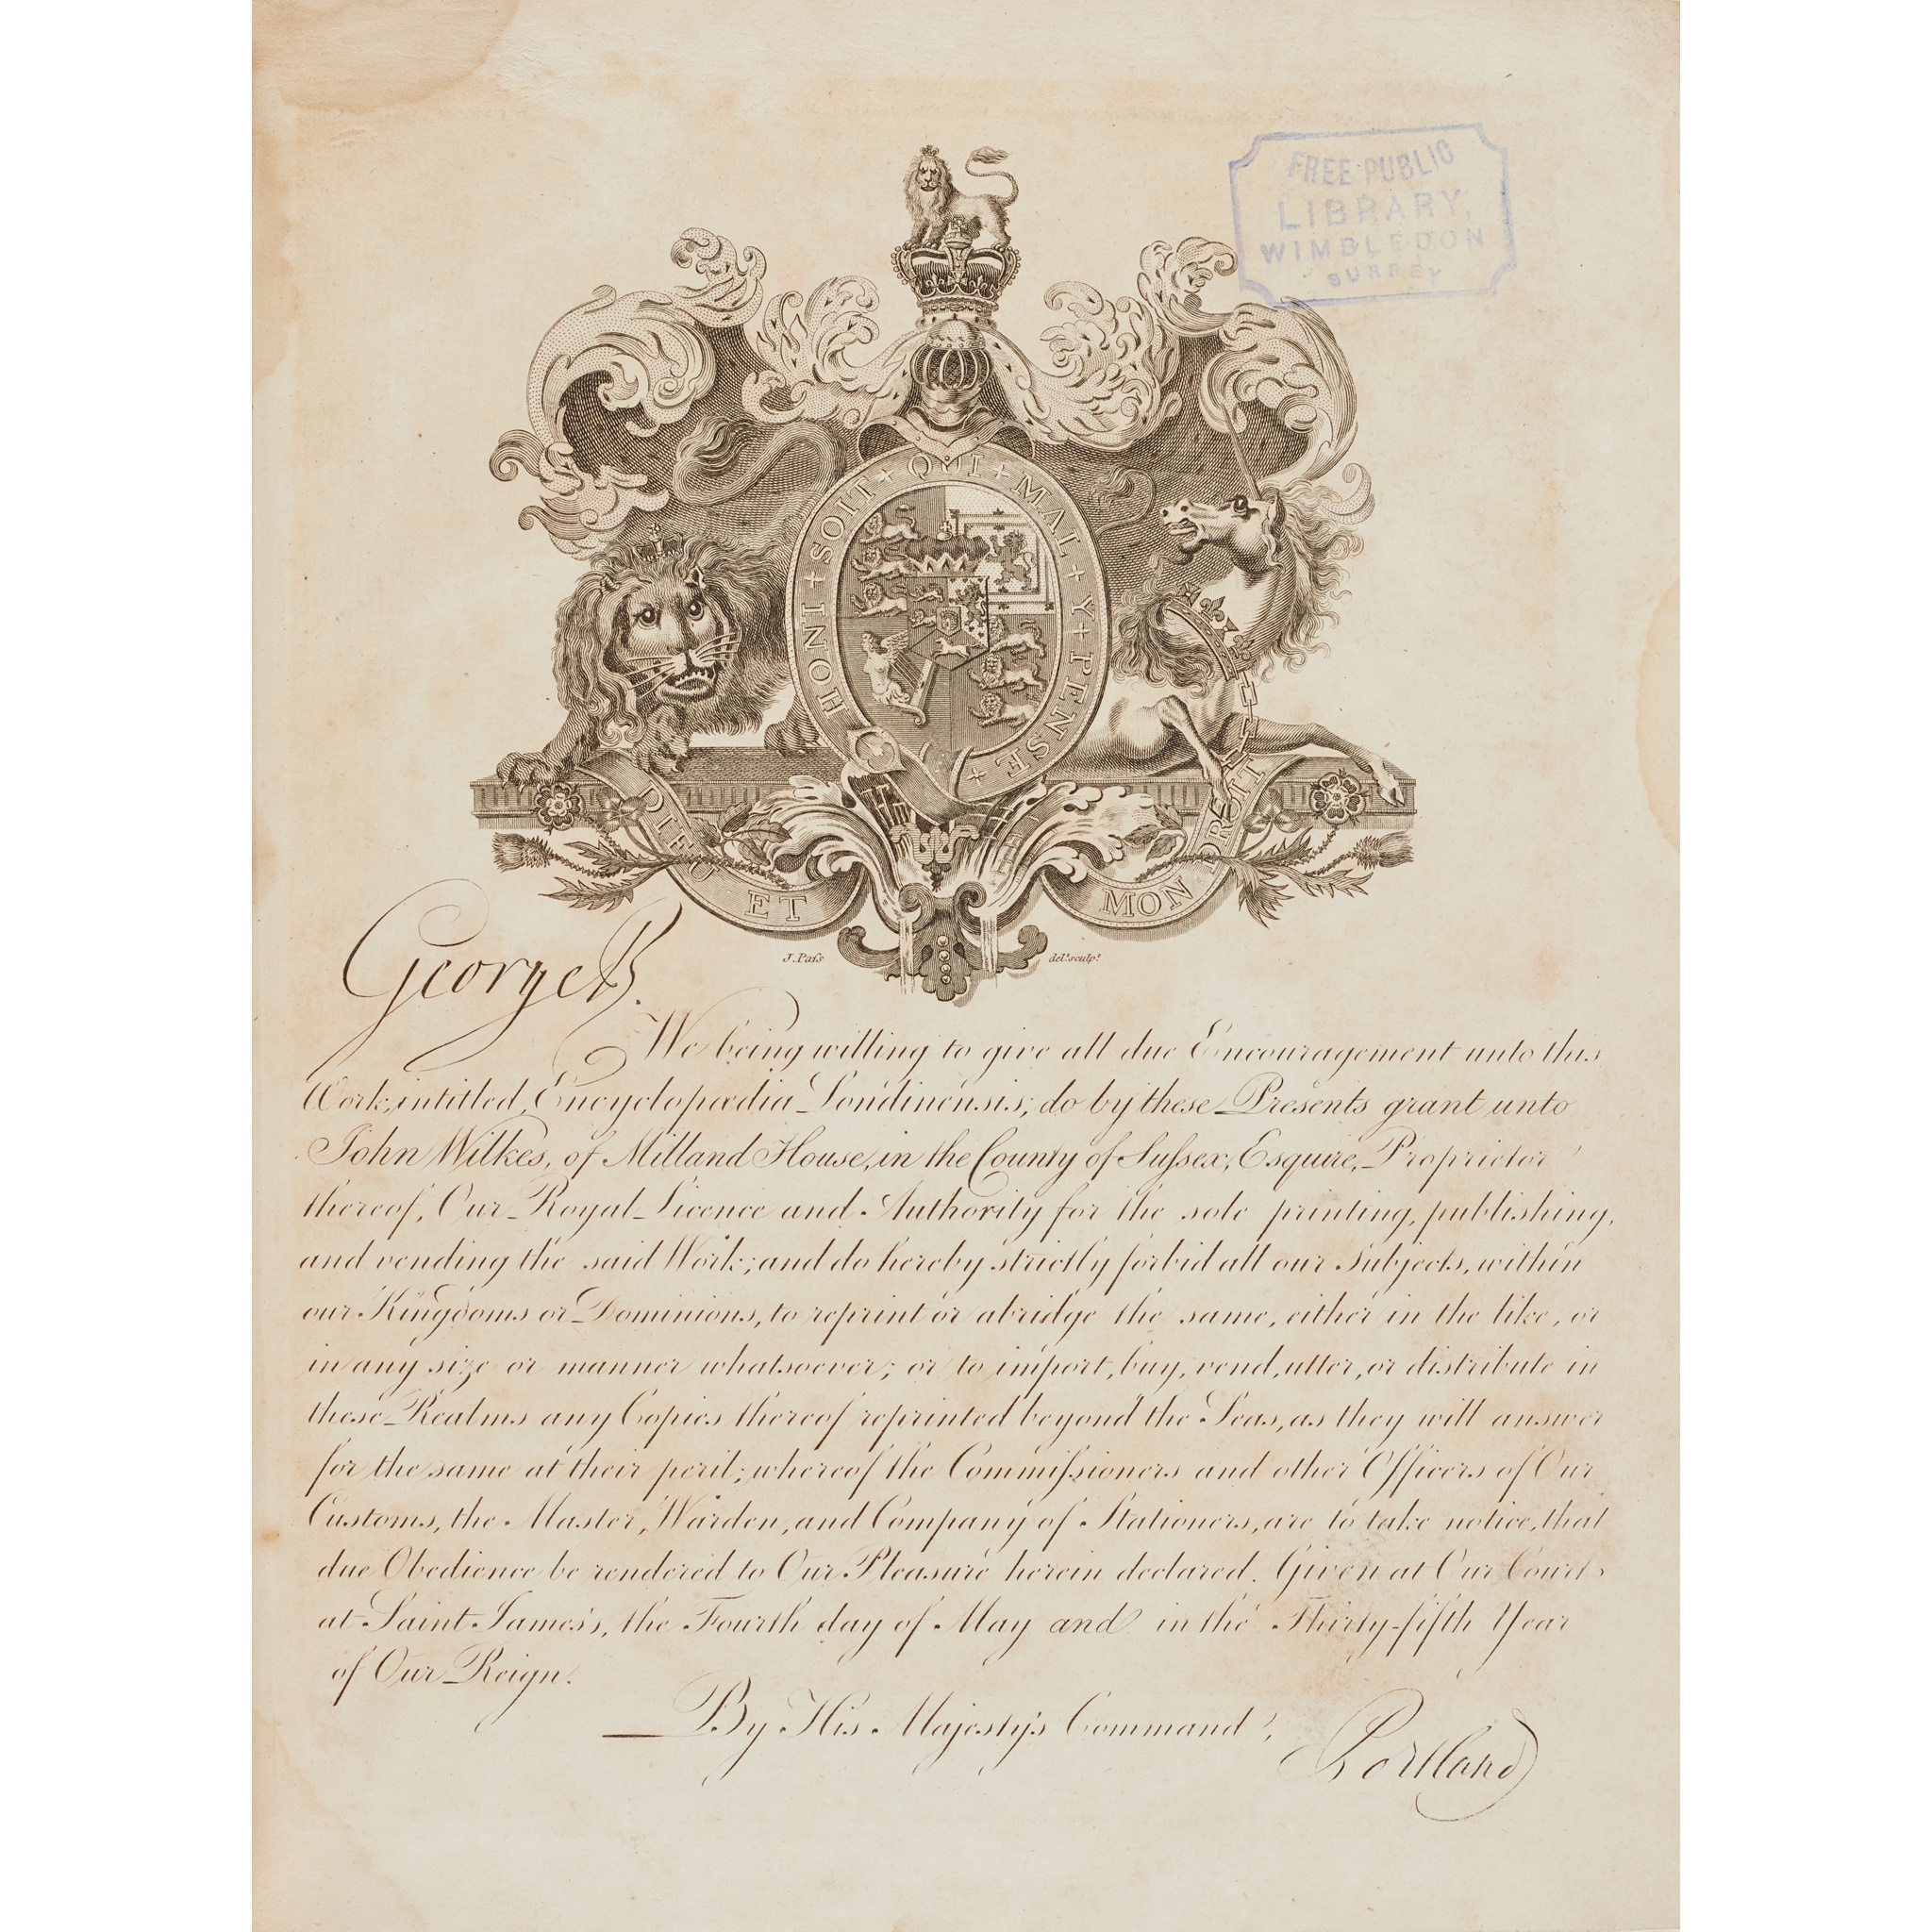 FREE PUBLIC
LIBRARY,
WIMBLEDON
SURREY
HONI + SOIT + QUI + MAL + Y + PENSE +
DIEU ET MON DROIT
J. Paſs
del.t sculp.t
George R.
We being willing to give all due Encouragement unto this
Work, intitled, Encyclopædia Londinensis; do by these Presents grant unto
John Wilkes, of Milland House, in the County of Suſsex, Esquire, Proprietor
thereof, Our Royal Licence and Authority for the sole printing, publishing,
and vending the said Work; and do hereby strictly forbid all our Subjects, within
our Kingdoms or Dominions, to reprint or abridge the same, either in the like, or
in any size or manner whatsoever; or to import, buy, vend, utter, or distribute in
these Realms any Copies thereof reprinted beyond the Seas, as they will answer
for the same at their peril; whereof the Commiſsioners and other Officers of Our
Customs, the Master, Warden, and Company of Stationers, are to take notice, that
due Obedience be rendered to Our Pleasure herein declared. Given at Our Court
at Saint James's, the Fourth day of May and in the Thirty-fifth Year
of Our Reign.
By His Majesty's Command,
Portland